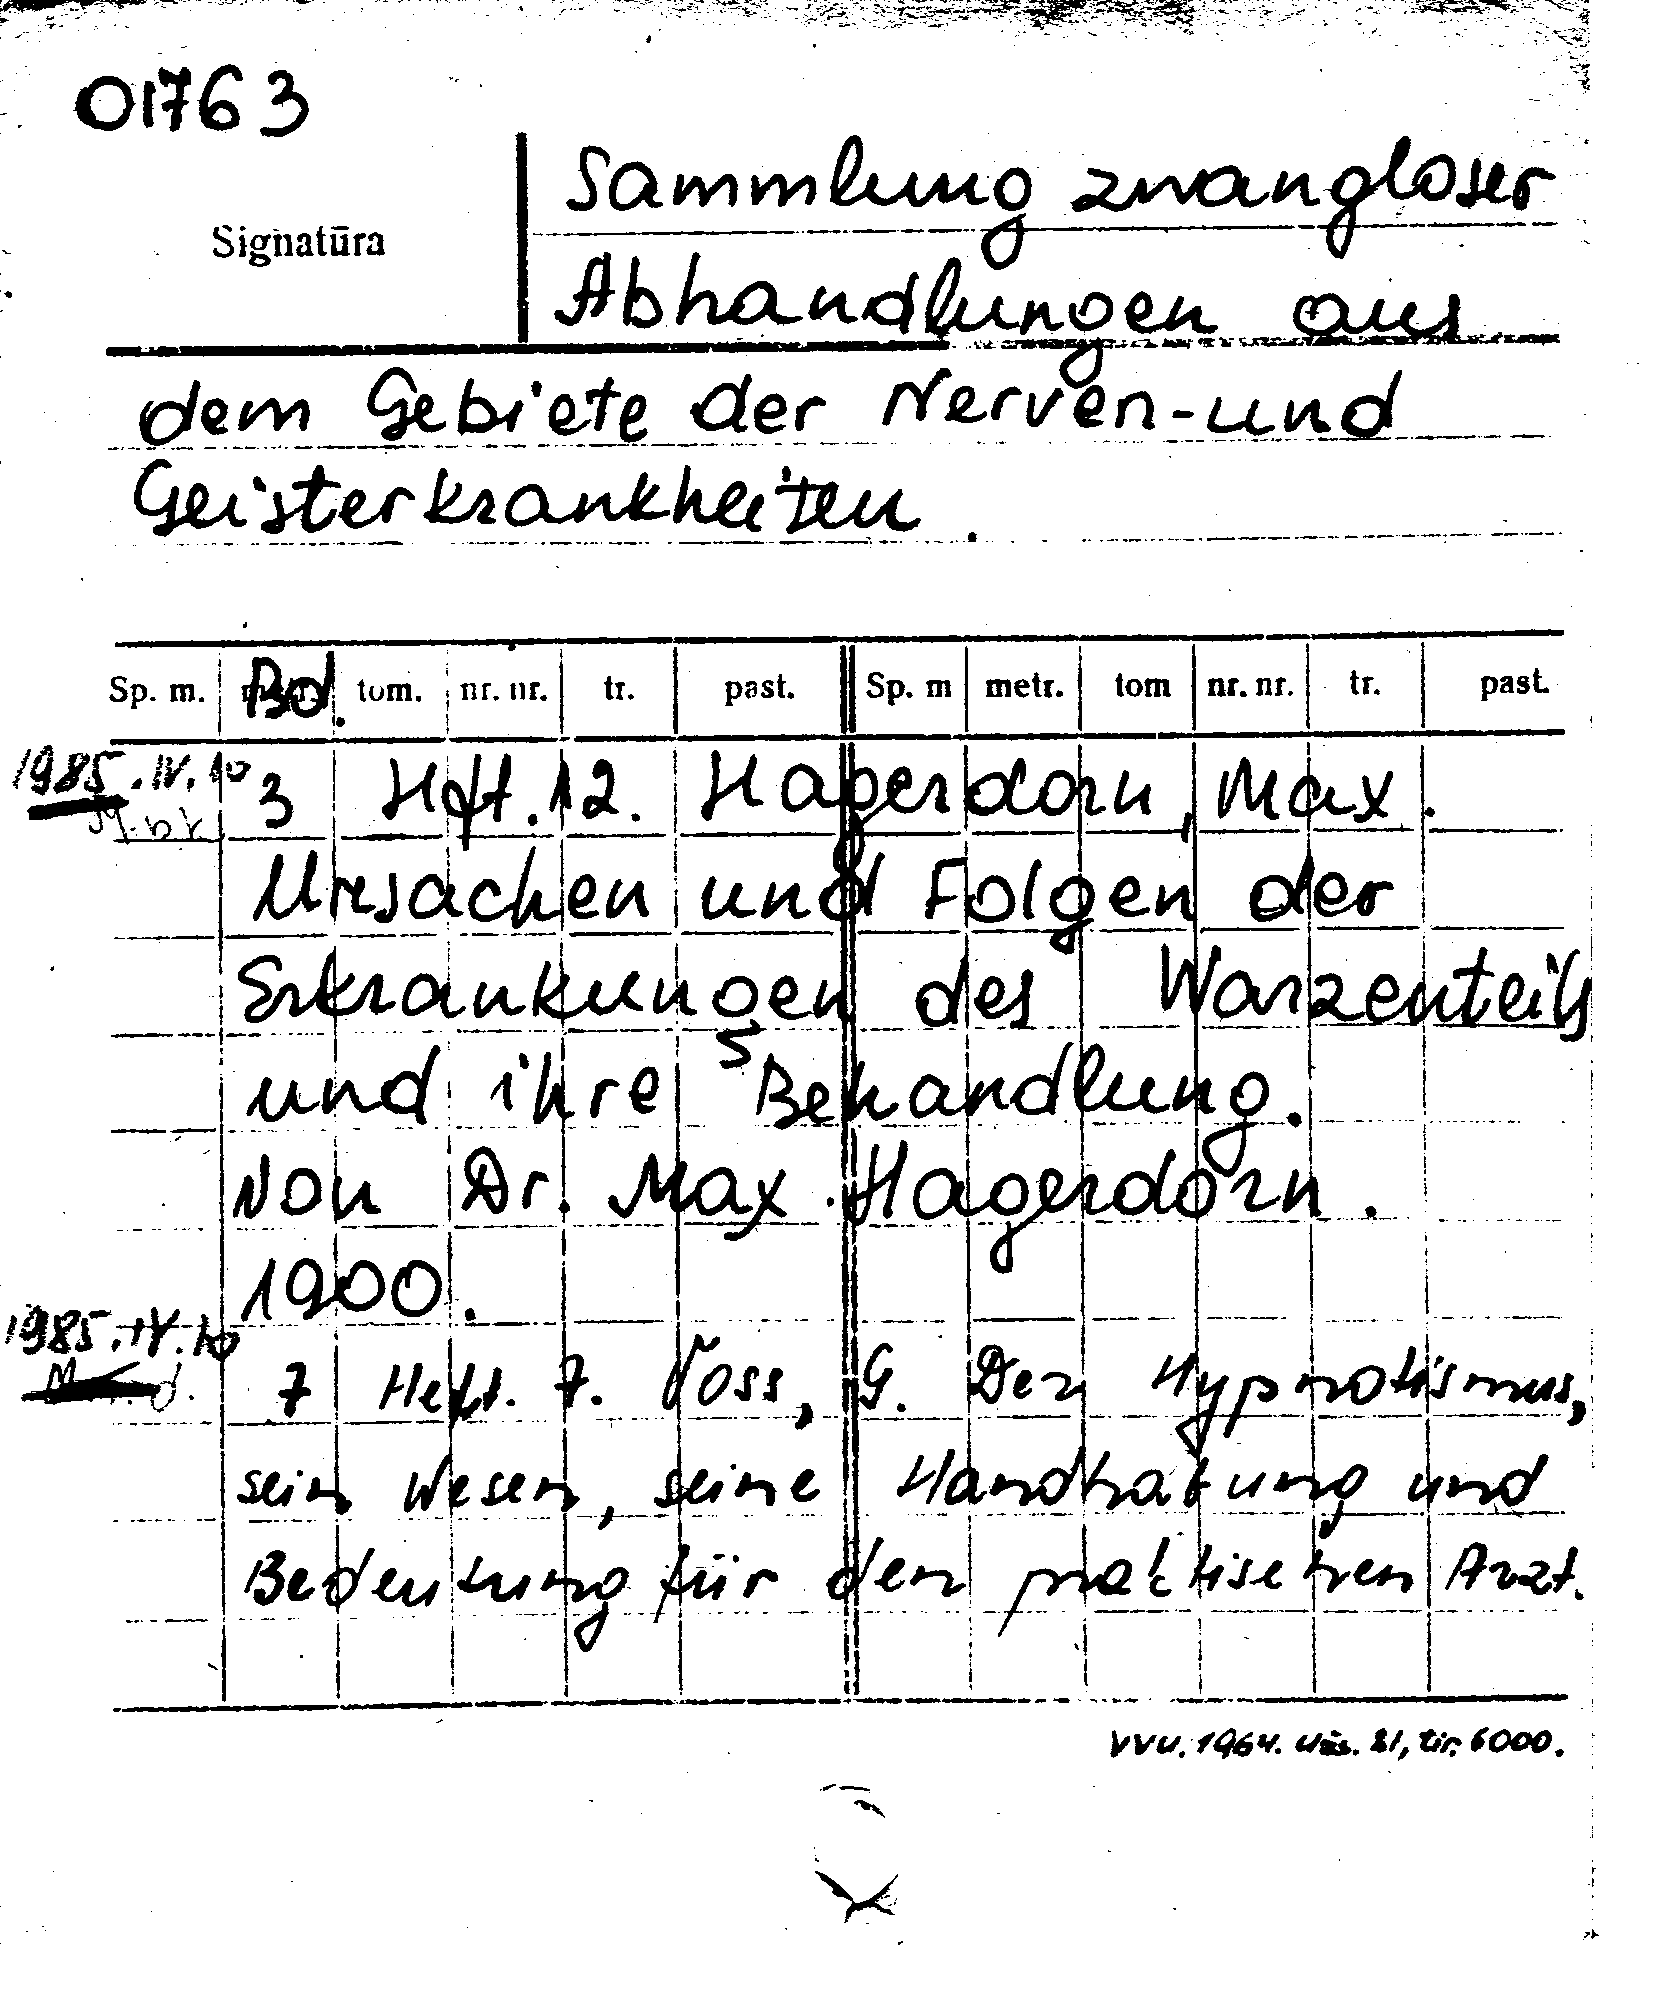 01763
Signatūra
Sammlung zwangloser
Abhandlungen aus
dem Gebiete der Nerven-und
Geisterkrankheiten.
Sp. m. Bd. tom. nr. nr. tr. past. Sp. m metr. tom nr. nr. tr. past.
1985.IV.10 3 Hft. 12. Hagerdorn, Max.
Ursachen und Folgen der
Erkrankungen des Warzenteils
und ihre Behandlung.
Von Dr. Max Hagerdorn.
1900.
1985.IV.10
7 Heft. 7. Voss, G. Der Hypnotismus,
sein Wesen, seine Handhabung und
Bedeutung für den praktischen Arzt.
VVU. 1964. Užs. 21, tir. 6000.